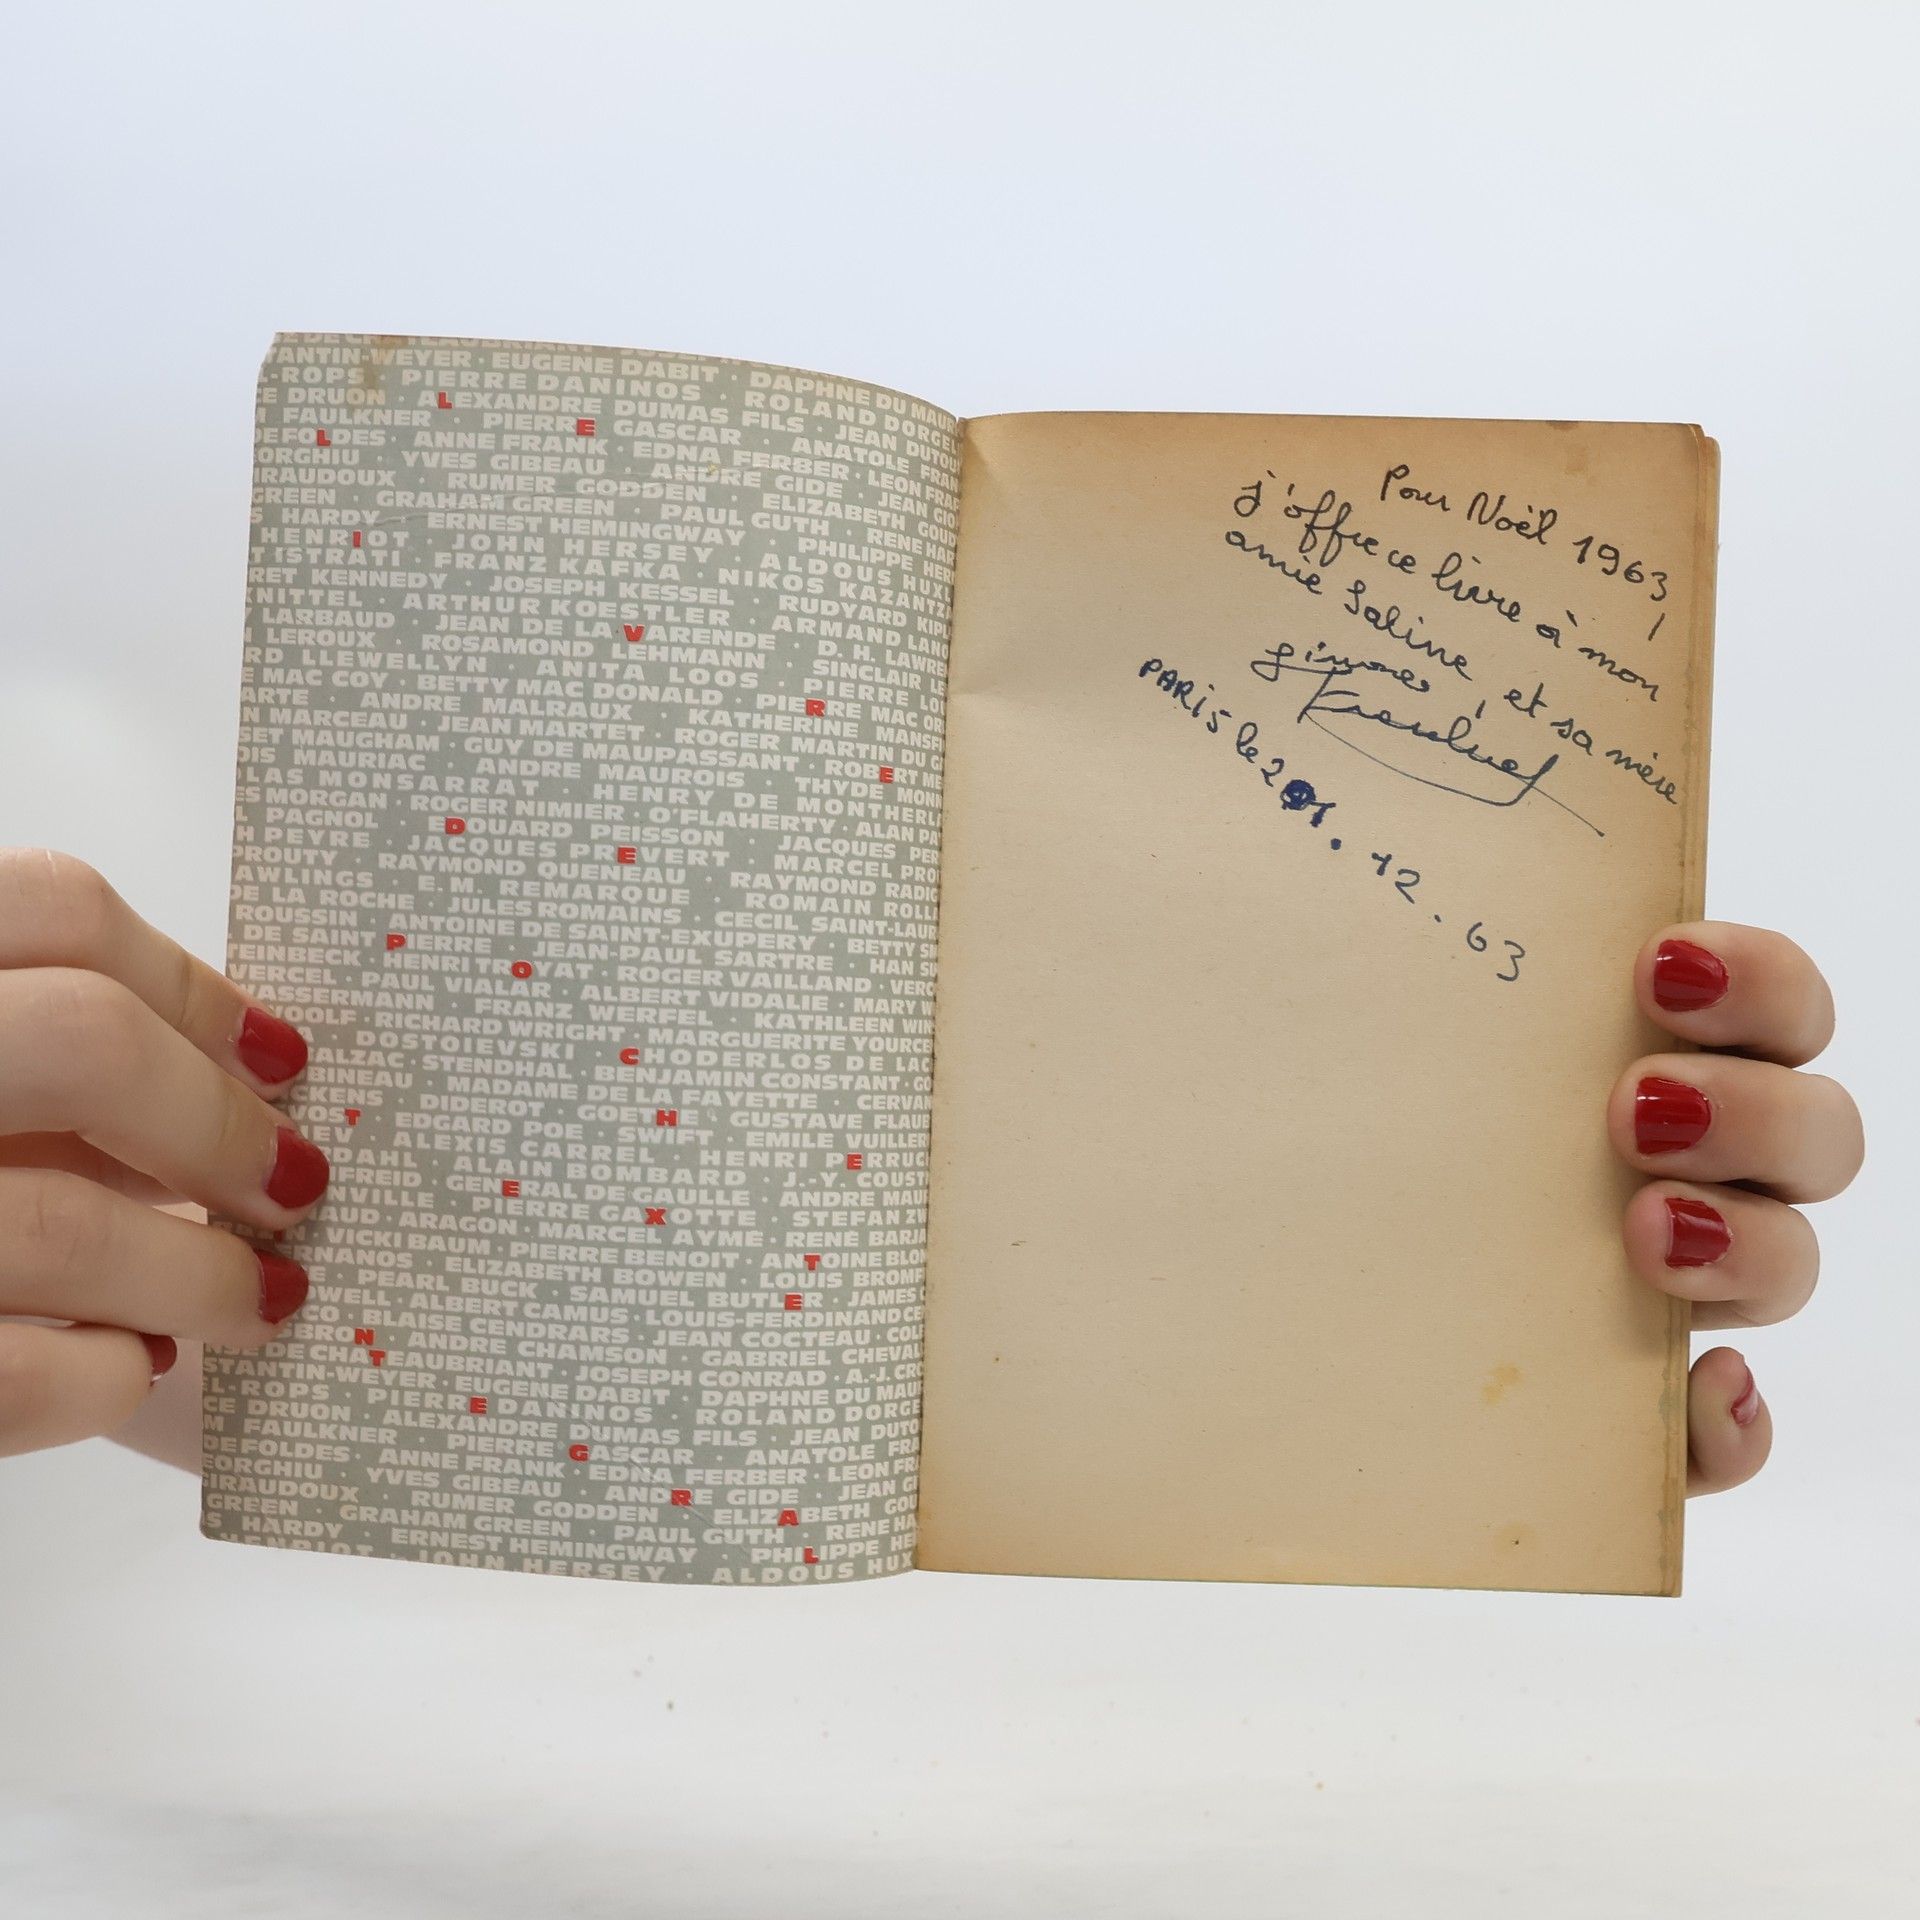 ANTIN-WEYER · EUGENE DABIT · DAPHNE DU MAUR
-ROPS · PIERRE DANINOS · ROLAND DORGEL
E DRUON · ALEXANDRE DUMAS FILS · JEAN DUTOU
FAULKNER · PIERRE GASCAR · ANATOLE FRAN
DEFOLDES · ANNE FRANK · EDNA FERBER · LEON FRA
ORGHIU · YVES GIBEAU · ANDRE GIDE · JEAN GIO
IRAUDOUX · RUMER GODDEN · ELIZABETH GOUD
GREEN · GRAHAM GREEN · PAUL GUTH · RENE HAR
S HARDY · ERNEST HEMINGWAY · PHILIPPE HER
HENRIOT · JOHN HERSEY · ALDOUS HUXL
T ISTRATI · FRANZ KAFKA · NIKOS KAZANTZA
RET KENNEDY · JOSEPH KESSEL · RUDYARD KIPL
KNITTEL · ARTHUR KOESTLER · ARMAND LANO
LARBAUD · JEAN DE LA VARENDE · D. H. LAWRE
LEROUX · ROSAMOND LEHMANN · SINCLAIR LE
RD LLEWELLYN · ANITA LOOS · PIERRE LO
E MAC COY · BETTY MAC DONALD · PIERRE MAC OR
ARTE · ANDRE MALRAUX · KATHERINE MANSF
N MARCEAU · JEAN MARTET · ROGER MARTIN DU G
SET MAUGHAM · GUY DE MAUPASSANT · ROBERT ME
OIS MAURIAC · ANDRE MAUROIS · THYDE MONN
LAS MONSARRAT · HENRY DE MONTHERLA
ES MORGAN · ROGER NIMIER · O'FLAHERTY · ALAN PA
L PAGNOL · EDOUARD PEISSON · JACQUES PER
H PEYRE · JACQUES PREVERT · MARCEL PRO
PROUTY · RAYMOND QUENEAU · RAYMOND RADIG
AWLINGS · E. M. REMARQUE · ROMAIN ROLLA
DE LA ROCHE · JULES ROMAINS · CECIL SAINT-LAUR
ROUSSIN · ANTOINE DE SAINT-EXUPERY · BETTY SM
DE SAINT PIERRE · JEAN-PAUL SARTRE · HAN SU
TEINBECK · HENRI TROYAT · ROGER VAILLAND · VERC
VERCEL · PAUL VIALAR · ALBERT VIDALIE · MARY W
WASSERMANN · FRANZ WERFEL · KATHLEEN WIN
WOOLF · RICHARD WRIGHT · MARGUERITE YOURCE
· DOSTOIEVSKI · CHODERLOS DE LAC
ALZAC · STENDHAL · BENJAMIN CONSTANT · GO
BINEAU · MADAME DE LA FAYETTE · CERVAN
CKENS · DIDEROT · GOETHE · GUSTAVE FLAUB
VOST · EDGARD POE · SWIFT · EMILE VUILLER
EV · ALEXIS CARREL · HENRI PERRUC
DAHL · ALAIN BOMBARD · J.-Y. COUST
FREID · GENERAL DE GAULLE · ANDRE MAU
NVILLE · PIERRE GAXOTTE · STEFAN ZW
AUD · ARAGON · MARCEL AYME · RENE BARJA
· VICKI BAUM · PIERRE BENOIT · ANTOINE BLON
RNANOS · ELIZABETH BOWEN · LOUIS BROMF
E · PEARL BUCK · SAMUEL BUTLER · JAMES C
WELL · ALBERT CAMUS · LOUIS-FERDINAND CE
CO · BLAISE CENDRARS · JEAN COCTEAU · COLE
BRON · ANDRE CHAMSON · GABRIEL CHEVAL
NSE DE CHATEAUBRIANT · JOSEPH CONRAD · A.-J. CRO
STANTIN-WEYER · EUGENE DABIT · DAPHNE DU MAU
EL-ROPS · PIERRE DANINOS · ROLAND DORGE
CE DRUON · ALEXANDRE DUMAS FILS · JEAN DUTO
M FAULKNER · PIERRE GASCAR · ANATOLE FRA
DEFOLDES · ANNE FRANK · EDNA FERBER · LEON FR
EORGHIU · YVES GIBEAU · ANDRE GIDE · JEAN GI
IRAUDOUX · RUMER GODDEN · ELIZABETH GOU
GREEN · GRAHAM GREEN · PAUL GUTH · RENE HA
S HARDY · ERNEST HEMINGWAY · PHILIPPE HE
HENRIOT · JOHN HERSEY · ALDOUS HUX
Pour Noël 1963,
j'offre ce livre à mon
amie Saline, et sa mère
PARIS le 2 . 12 . 63